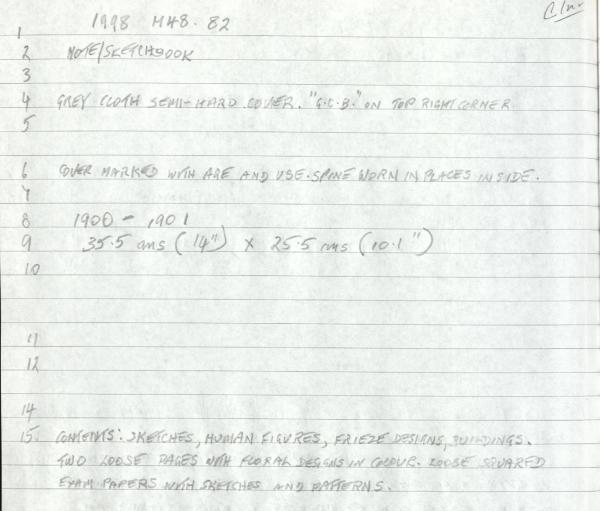 1 1998 MH8. 82
2 NOTE/SKETCHBOOK
3
4 GREY CLOTH SEMI-HARD COVER. "G.C.B." ON TOP RIGHT CORNER
5
6 COVER MARKED WITH AGE AND USE. SPINE WORN IN PLACES INSIDE.
7
8 1900 - 1901
9 35.5 cms (14") x 25.5 cms (10.1")
10
11
12
14
15. CONTENTS: SKETCHES, HUMAN FIGURES, FRIEZE DESIGNS, BUILDINGS.
TWO LOOSE PAGES WITH FLORAL DESIGNS IN COLOUR. LOOSE SQUARED
EXAM PAPERS WITH SKETCHES AND PATTERNS.